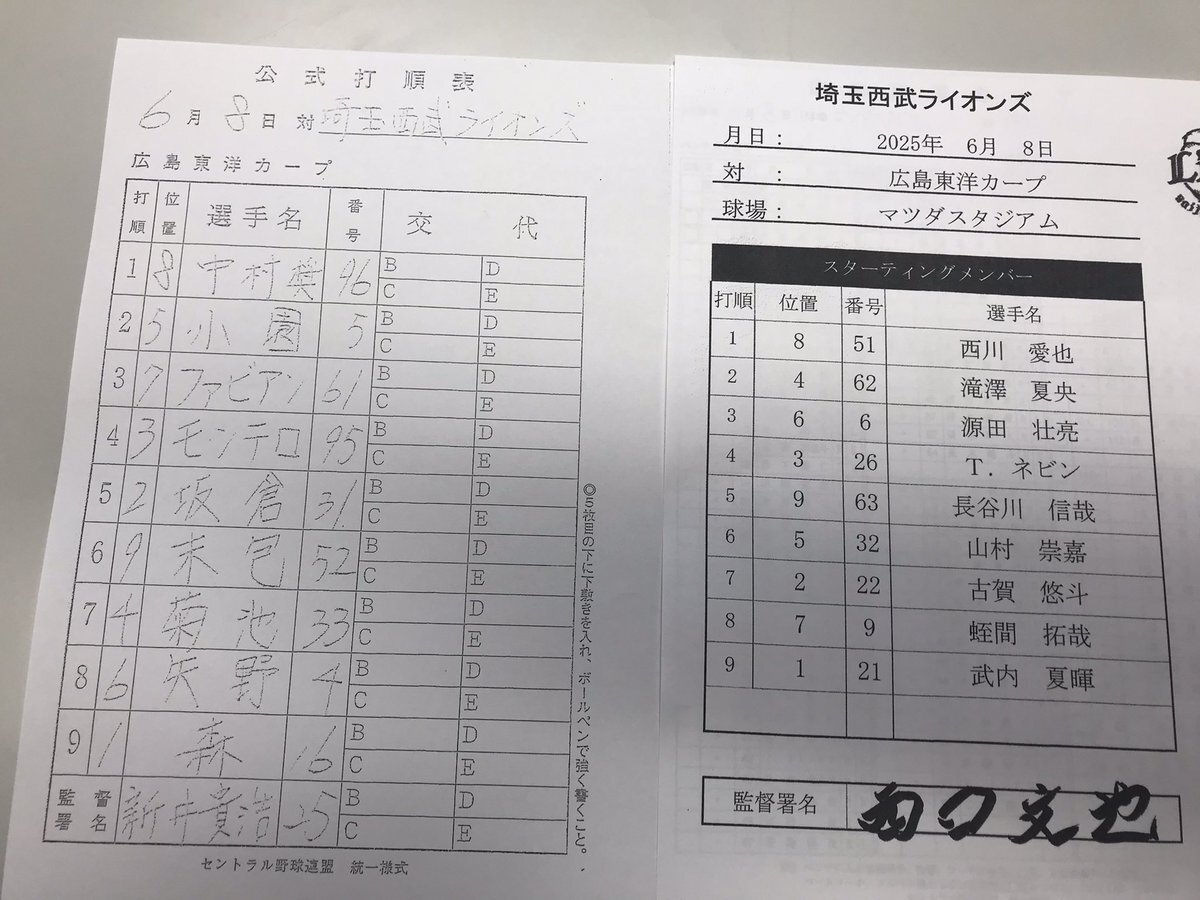 公式打順表
6月8日 対 埼玉西武ライオンズ
広島東洋カープ
打順 位置 選手名 番号 交代
1 8 中村奨 96 B D
C E
2 5 小園 5 B D
C E
3 7 ファビアン 61 B D
C E
4 3 モンテロ 95 B D
C E
5 2 坂倉 31 B D
C E
6 9 末包 52 B D
C E
7 4 菊池 33 B D
C E
8 6 矢野 4 B D
C E
9 1 森 16 B D
C E
監督署名 新井貴浩 25 B D
C E
セントラル野球連盟 統一様式
◎5枚目の下に下敷きを入れ、ボールペンで強く書くこと。
埼玉西武ライオンズ
月日: 2025年 6月 8日
対 : 広島東洋カープ
球場: マツダスタジアム
スターティングメンバー
打順 位置 番号 選手名
1 8 51 西川 愛也
2 4 62 滝澤 夏央
3 6 6 源田 壮亮
4 3 26 T. ネビン
5 9 63 長谷川 信哉
6 5 32 山村 崇嘉
7 2 22 古賀 悠斗
8 7 9 蛭間 拓哉
9 1 21 武内 夏暉
監督署名 西口文也